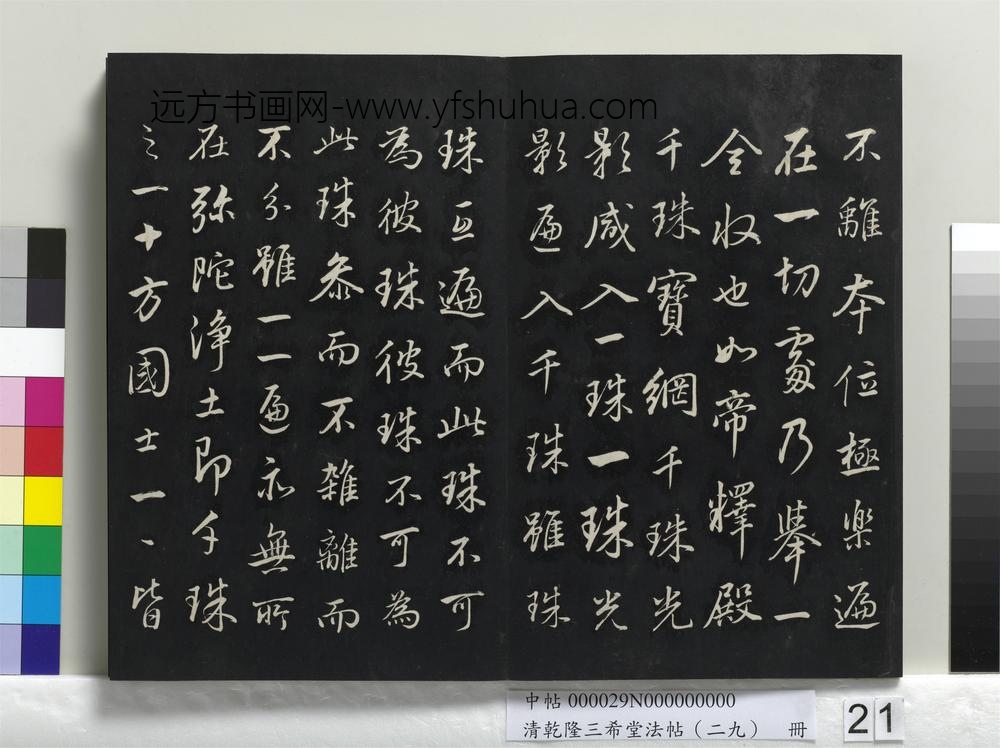 远方书画网-www.yfshuhua.com
不離本位極楽遍
在一切處乃舉一
全收也如帝釋殿
千珠寶網千珠光
影咸入一珠一珠光
影遍入千珠雖珠
珠互遍而此珠不可
為彼珠彼珠不可為
此珠叅而不雜離而
不分雖一一遍亦無所
在弥陀淨土即千珠
之一十方國土一一皆
中帖 000029N000000000
清乾隆三希堂法帖（二九） 冊
21